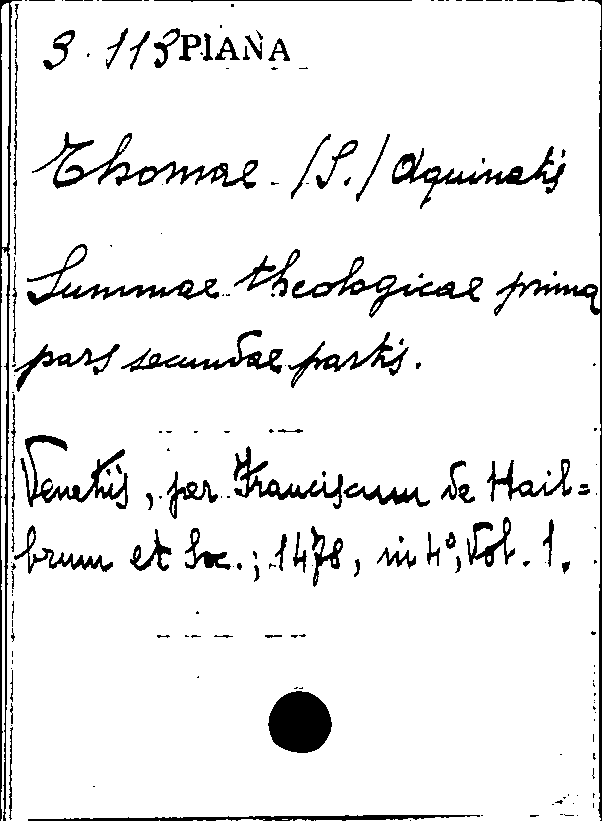 3. 113 PIANA
Thomae (S.) Aquinatis
Summae theologicae prima
pars secundae partis.
Venetiis, per Franciscum de Hail=
brum et Soc.; 1478, in 4º, Vol. 1.